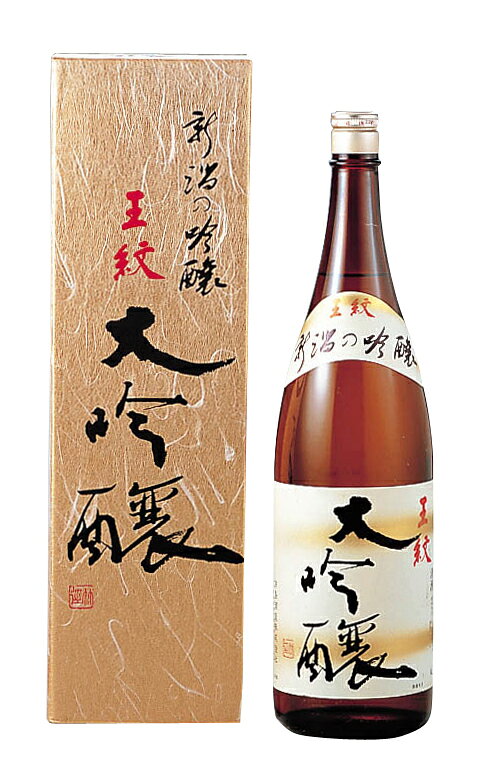 新潟の吟醸
王紋
大吟醸
王紋
新潟の吟醸
王紋
大吟醸